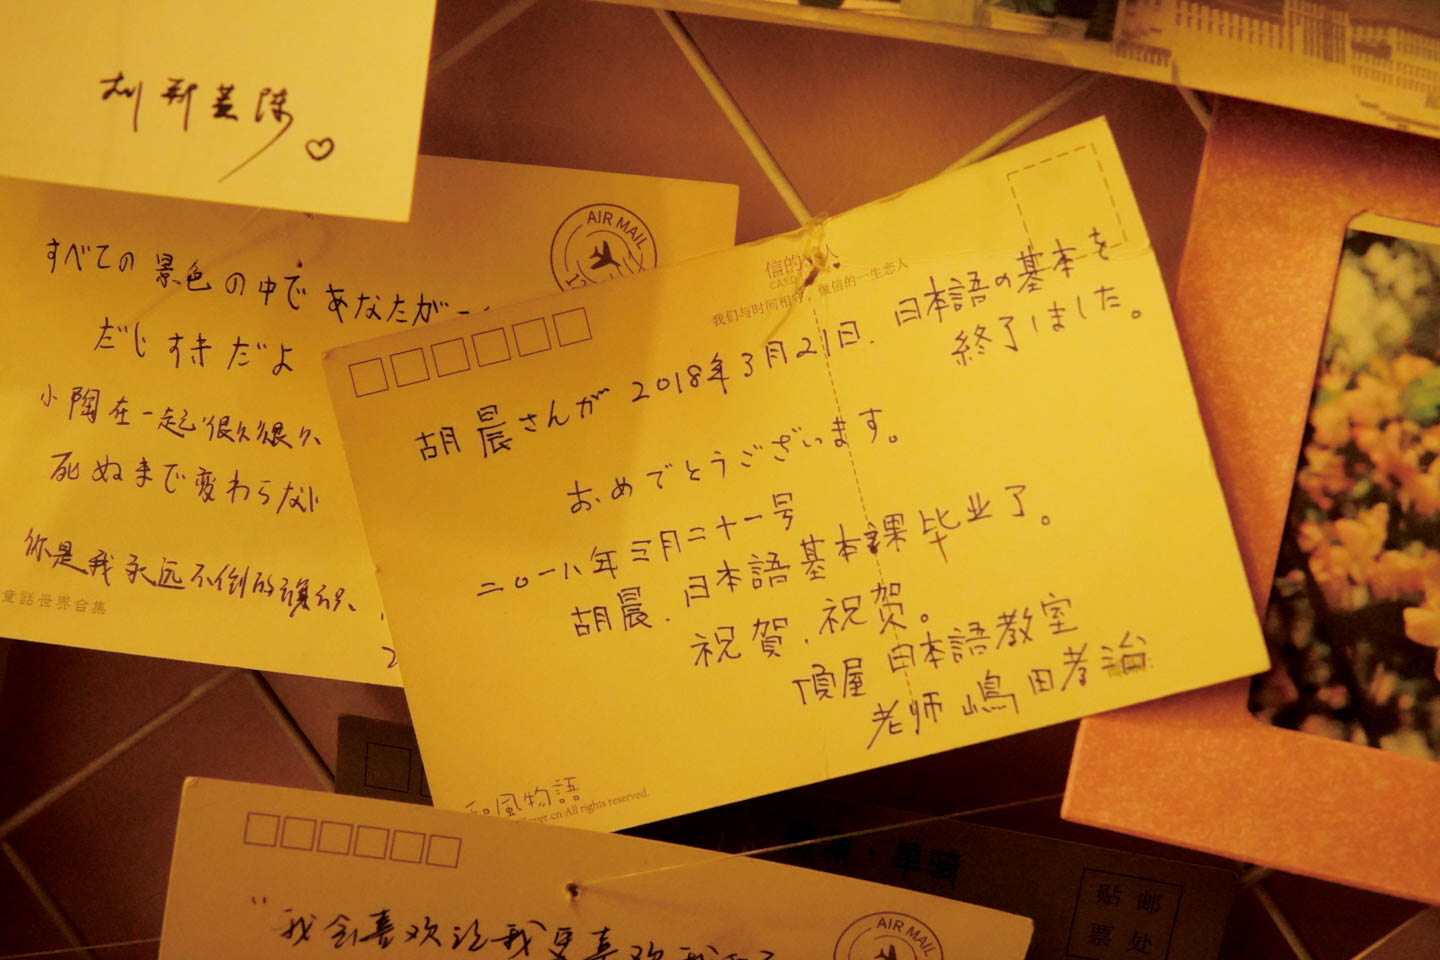 AIR MAIL
すべての景色の中で あなたが一
だいすきだよ
小陶在一起很久很久
死ぬまで変わらない
你是我永远不倒的
童話世界合集
信的恋人
我们与时间相 ，做信的一生恋人
胡晨さんが 2018年3月21日、日本語の基本を
終了しました。
おめでとうございます。
二〇一八年三月二十一号
胡晨、日本語基本課毕业了。
祝賀、祝贺。
頂屋 日本語教室
老师 嶋田孝治
風物語
.cn All rights reserved.
单骑
贴 邮
票 处
AIR MAIL
"我会喜欢 我更喜欢我